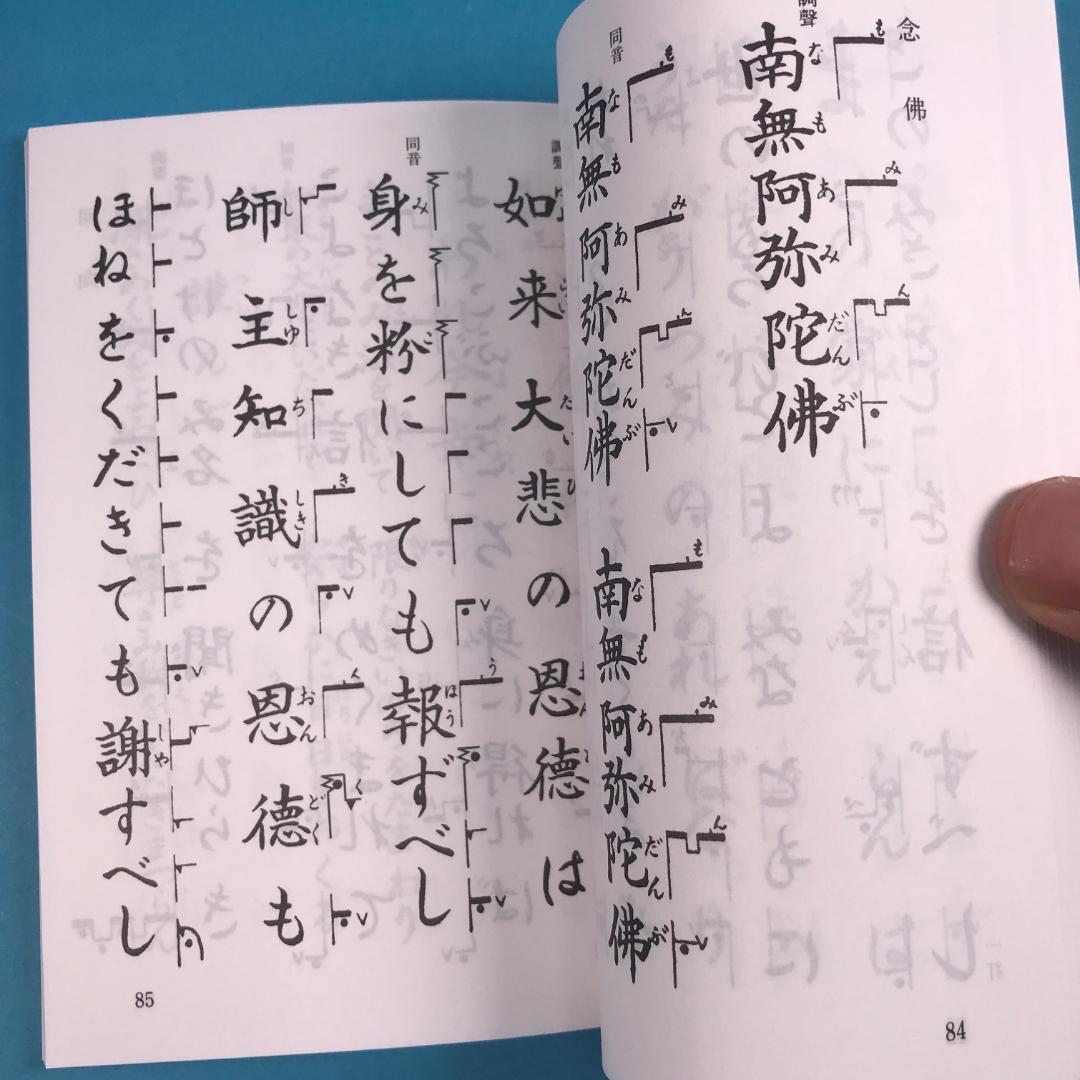 念佛
調聲
南無阿弥陀佛
同音
南無阿弥陀佛
南無阿弥陀佛
84
調聲
如来大悲の恩德は
同音
身を粉にしても報ずべし
師主知識の恩德も
ほねをくだきても謝すべし
85